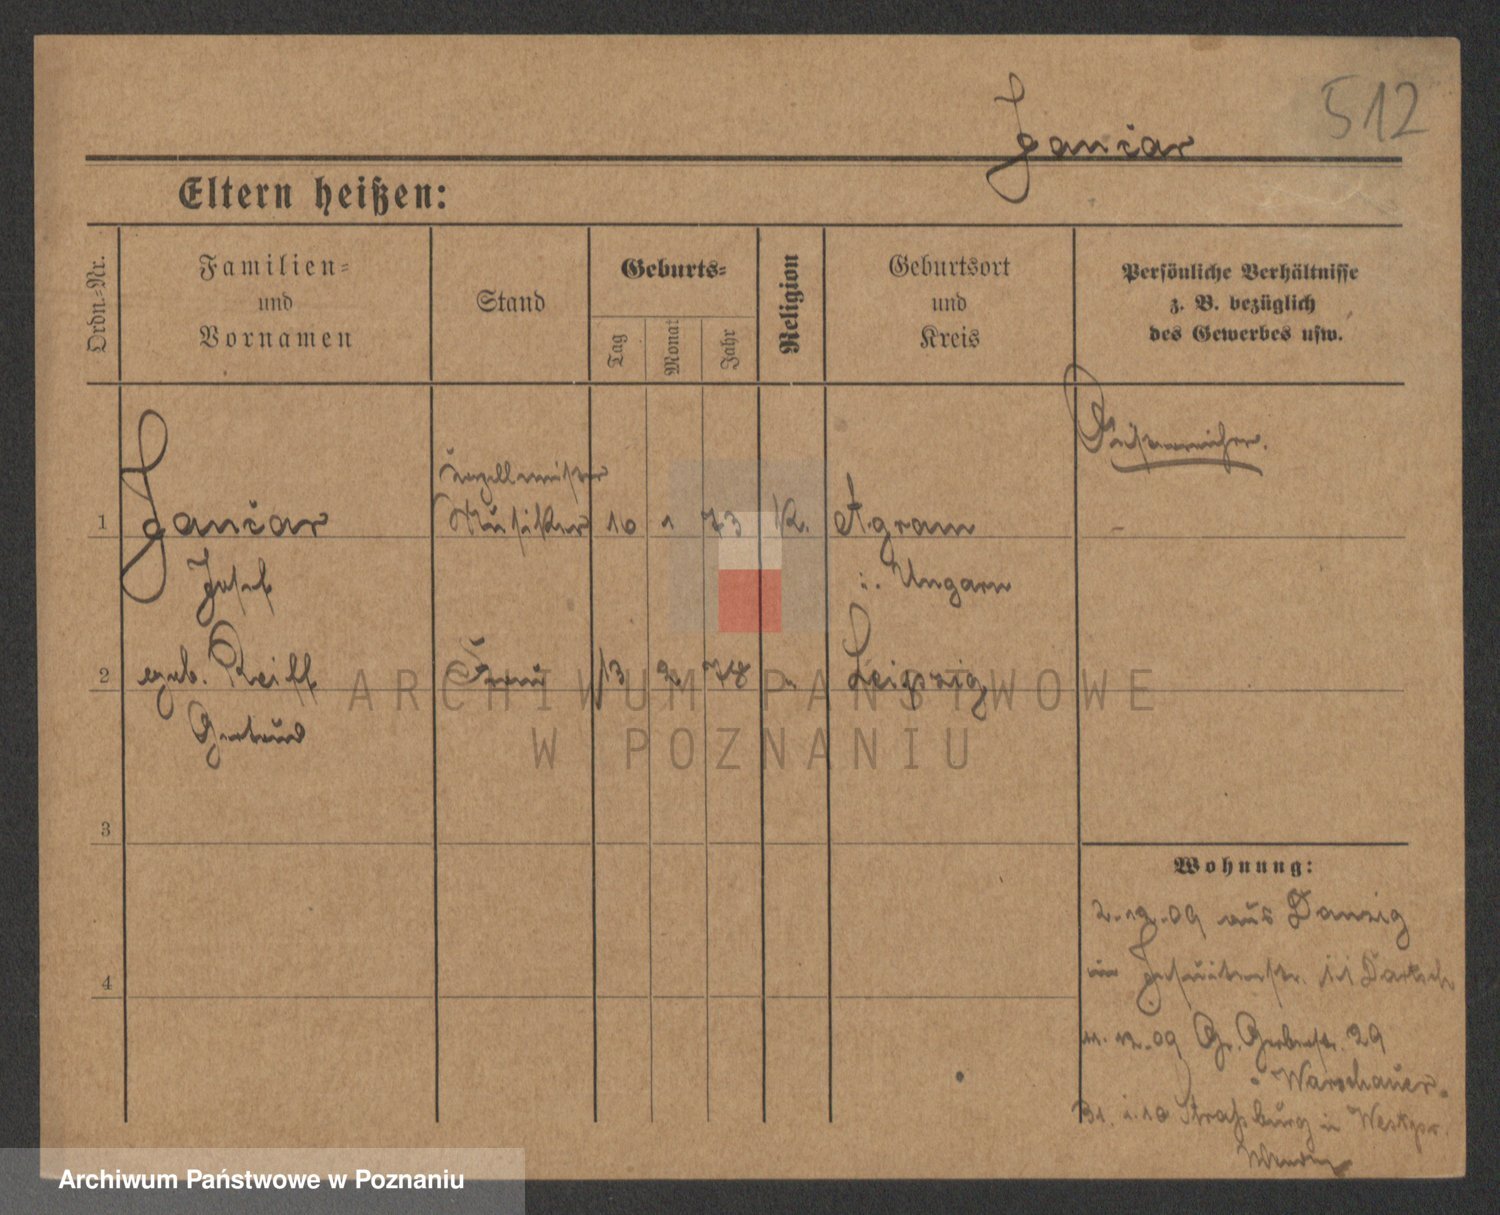 512
Janiar
Eltern heißen:
Ordn.-Nr.
Familien-
und
Vornamen
Stand
Geburts-
Tag
Monat
Jahr
Religion
Geburtsort
und
Kreis
Persönliche Verhältnisse
z. B. bezüglich
des Gewerbes usw.
Österreicher.
Kapellmeister
1 Janiar Musiker 10 1 73 K. Agram
Josef i. Ungarn
2 geb. Reiff Frau 13 2 78 " Leipzig
Gertrud
3
4
Wohnung:
2.12.09 aus Danzig
Jesuitenstr. 11
11.12.09 Gr. Gerberstr. 29
Warschauer
31. 1. 10 Straßburg in Westpr.
ARCHIWUM PAŃSTWOWE
W POZNANIU
Archiwum Państwowe w Poznaniu